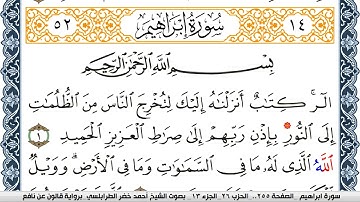 ٥٢ سُورَةُ إِبْرَاهِيمَ ١٤
بِسْمِ اللَّهِ الرَّحْمَٰنِ الرَّحِيمِ
أَلَٓرۖ كِتَٰبٌ أَنزَلْنَٰهُ إِلَيْكَ لِتُخْرِجَ اَلنَّاسَ مِنَ اَلظُّلُمَٰتِ
إِلَى اَلنُّورِ بِإِذْنِ رَبِّهِمْ إِلَىٰ صِرَٰطِ اِلْعَزِيزِ اِلْحَمِيدِ ١
اَللَّهُ اُلَّذِے لَهُۥ مَا فِے اِلسَّمَٰوَٰتِ وَمَا فِے اِلْأَرْضِۖ وَوَيْلٌ
سورة ابراهيم . الصفحة ٢٥٥ .. الحزب ٢٦ . الجزء ١٣ . بصوت الشيخ أحمد خضر الطرابلسي . برواية قالون عن نافع